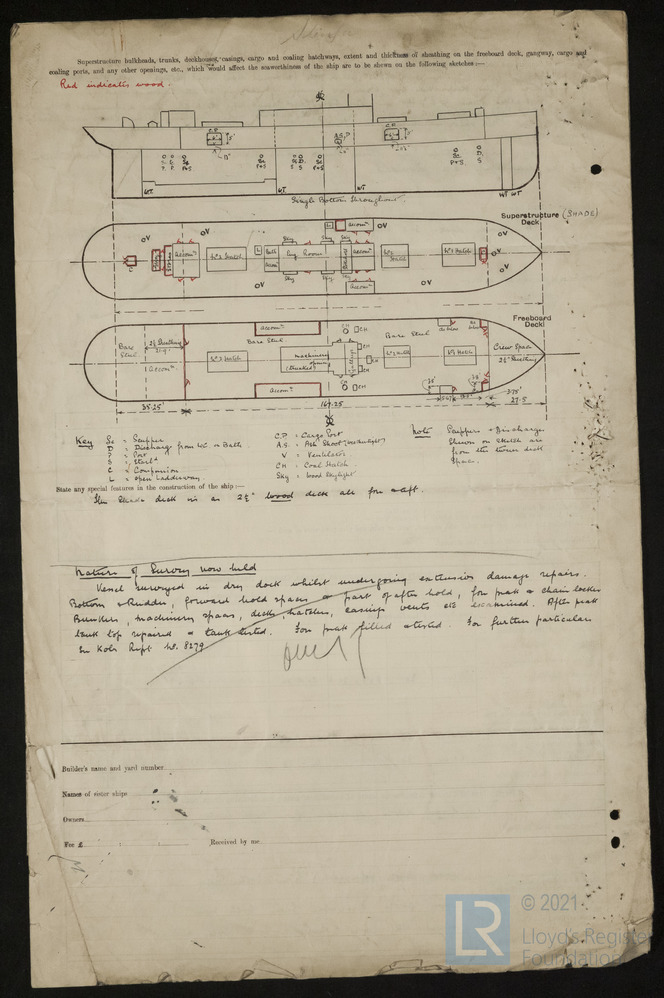 Superstructure bulkheads, trunks, deckhouses, casings, cargo and coaling hatchways, extent and thickness of sheathing on the freeboard deck, gangway, cargo and
coaling ports, and any other openings, etc., which would affect the seaworthiness of the ship are to be shewn on the following sketches:—
Red indicates wood.
C.P.
A.S. P
C.P.
W.T.
WT
WT
WT WT
Single Bottom Throughout.
Superstructure (SHADE)
Deck
V
V
V
V
V
V
V
Accomn
No 3 Hatch
Bath
Eng. Room
Sky
Sky
Sky
Sky
Accomn
No 2 Hatch
No 1 Hatch
Accomn
Freeboard
Deck
Bare
Steel
2½ Sheathing
Accomn
Bare Steel
Accomn
No 3 Hatch
machinery
Accomn
CH
CH
CH
CH
CH
Bare Steel
No 2 Hatch
No 1 Hatch
Crew Space
2½" Sheathing
35.25'
169.25
27.5
Key Sc = Scupper
D = Discharge from WC or Bath.
P = Port
S = Starbd
C = Companion
L = open Ladderway
C.P. = Cargo Port
A.S. = Ash Shoot (watertight)
V = Ventilator
CH = Coal Hatch
Sky = Wood Skylight
Note Scuppers & Discharges
Shewn on sketch are
from the tween deck
Spaces.
State any special features in the construction of the ship:—
The Shade deck is an 2½" wood deck all fore & aft.
Nature of Survey now held
Vessel surveyed in dry dock whilst undergoing extensive damage repairs.
Bottom & Rudder, forward hold spaces & part of after hold, fore peak & chain locker
Bunkers, machinery spaces, decks, hatches, casings vents etc examined. After peak
tank top repaired & tank tested. Fore peak filled & tested. For further particulars
see Kob. Rept No. 8279
Builder's name and yard number
Names of sister ships
Owners
Fee £
Received by me
LR
© 2021
Lloyd's Register
Foundation